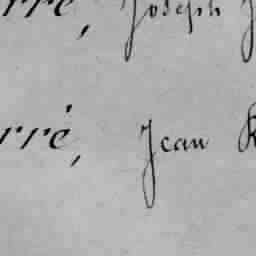 rré, Joseph J
rré, Jean R